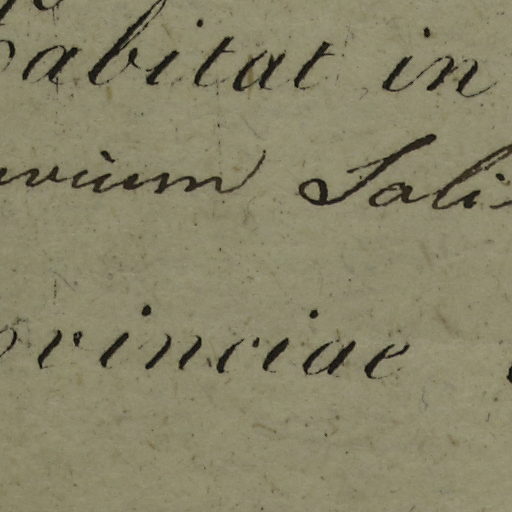 Habitat in
uvium Sali
ovinciae